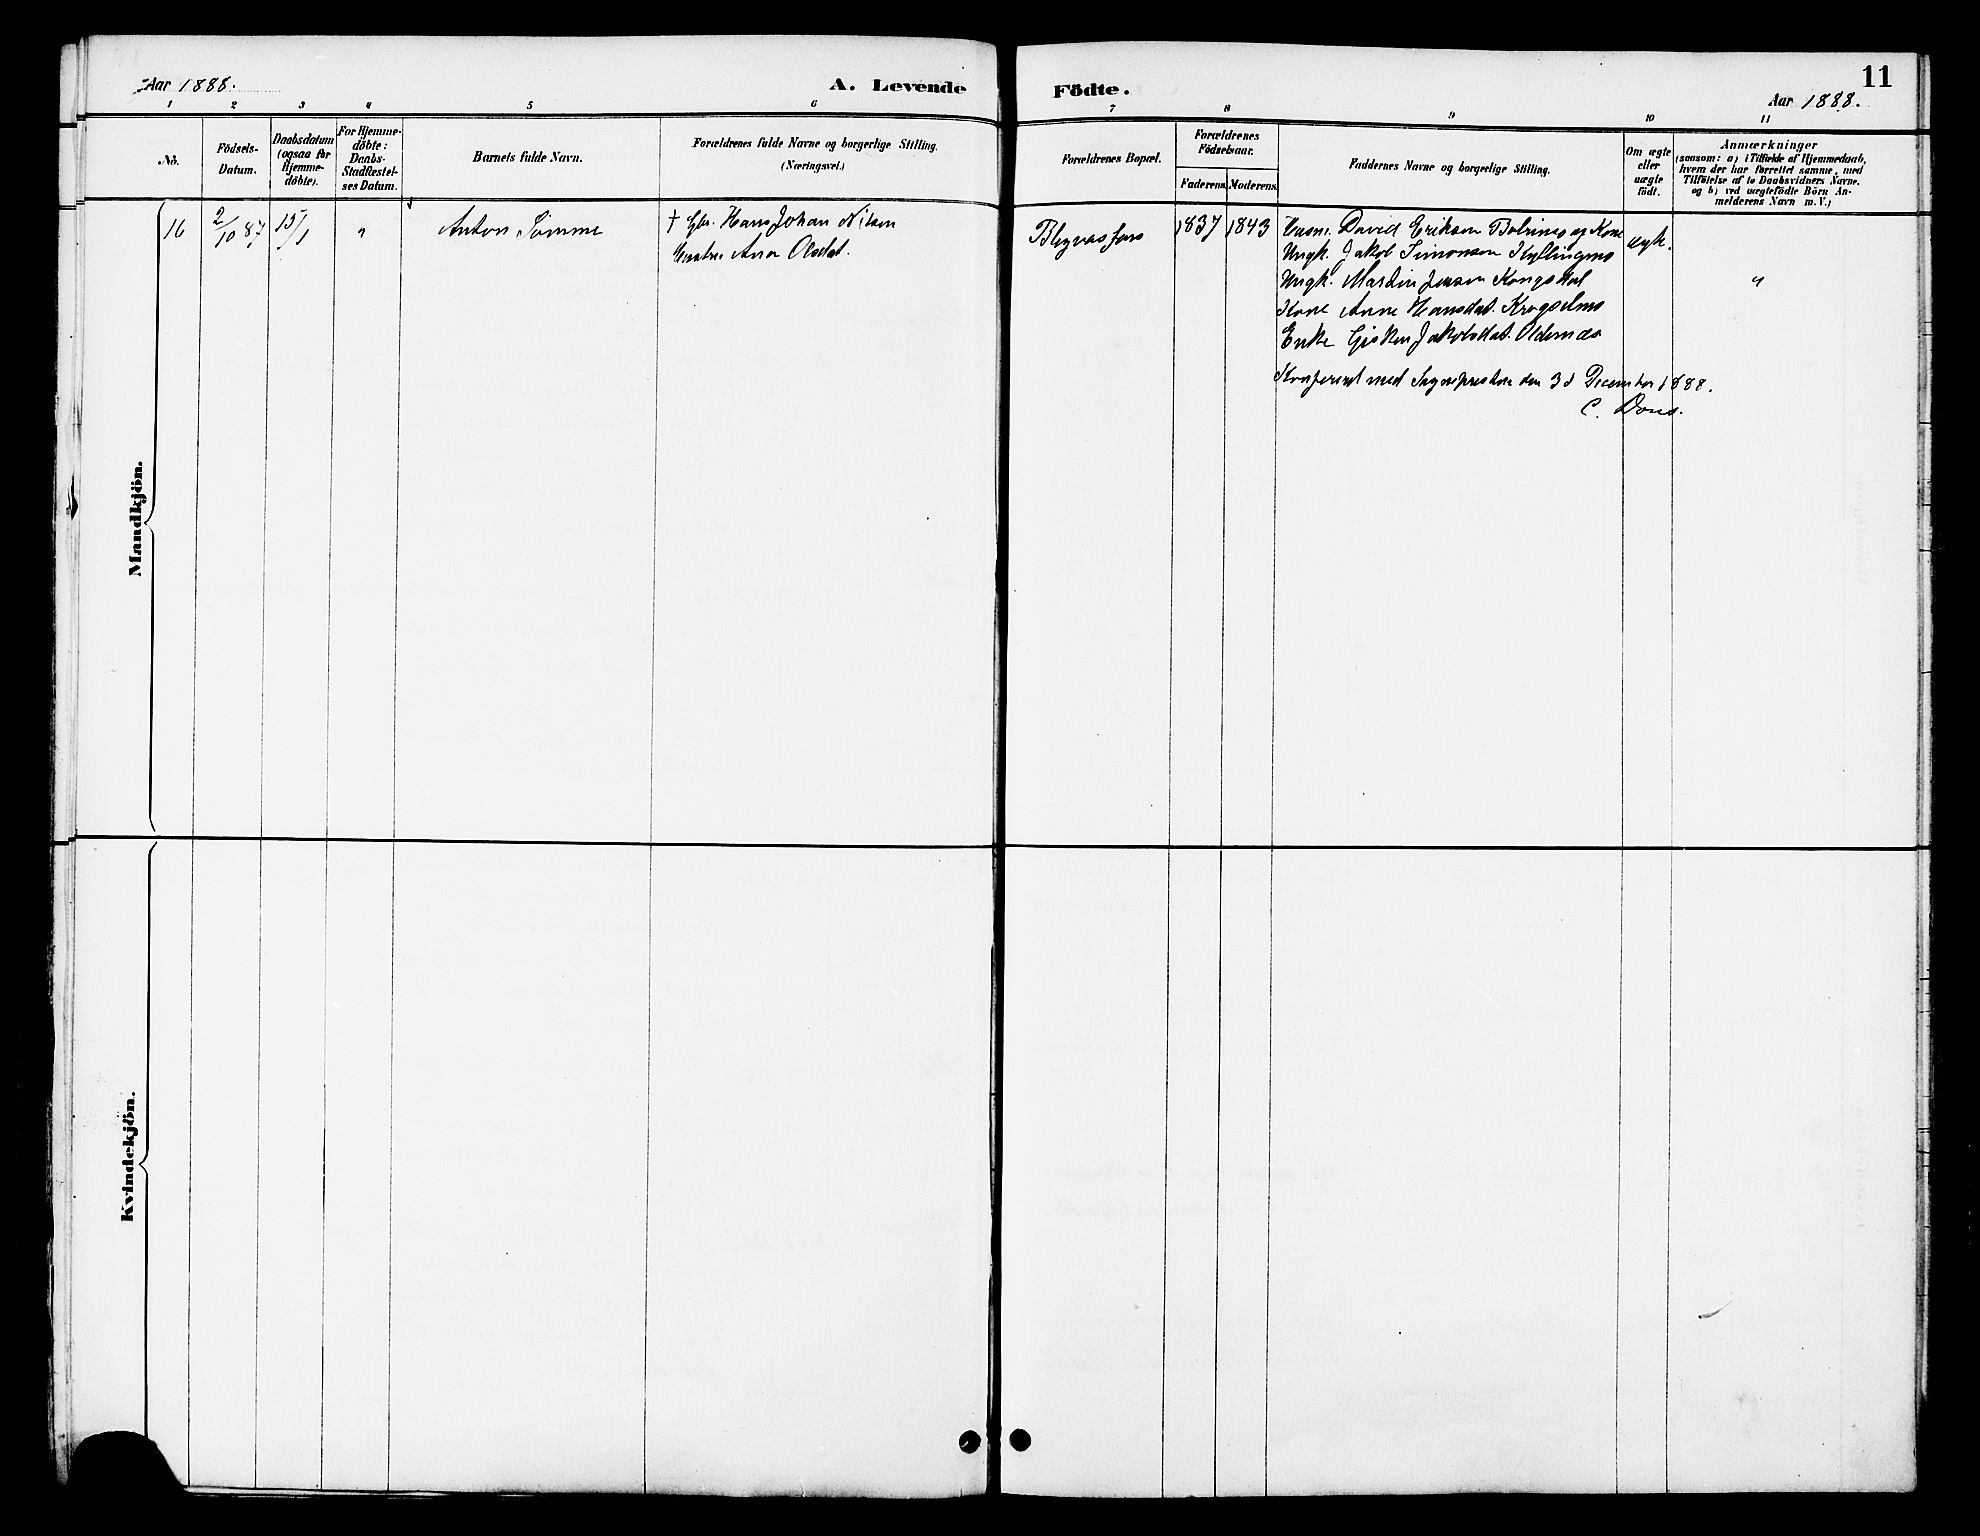 Aar 1888.
A. Levende
Födte.
11
Aar 1888.
1 2 3 4 5 6 7 8 9 10 11
No.
Födsels-
Datum.
Daabsdatum
(ogsaa for
Hjemme-
döbte).
For Hjemme-
döbte:
Daabs-
Stadfæstel-
ses Datum.
Barnets fulde Navn.
Forældrenes fulde Navne og borgerlige Stilling.
(Næringsvei.)
Forældrenes Bopæl.
Forældrenes
Födselsaar.
Faderens. Moderens.
Faddernes Navne og borgerlige Stilling.
Om ægte
eller
uægte
födt.
Anmærkninger
(saasom: a) i Tilfælde af Hjemmedaab,
hvem der har forrettet samme, med
Tilföielse af to Daabsvidners Navne.
og b) ved uægtefödte Börn An-
melderens Navn m. V.)
Mandkjön.
16
2/10 87
15/1
"
Anton Sömme
† Gbr. Hans Johan Nilsen
Anna Olsdat.
1837 1843
David Eriksen og Kone
Ungk. Jakob Simonsen
Ungk. Martin Jensen Kongsdal
Kone Anne Hansdat.
Enke Jakobsdat.
ægte.
"
Konfereret med Sognepresten den 31 December 1888.
C. Dons.
Kvindekjön.